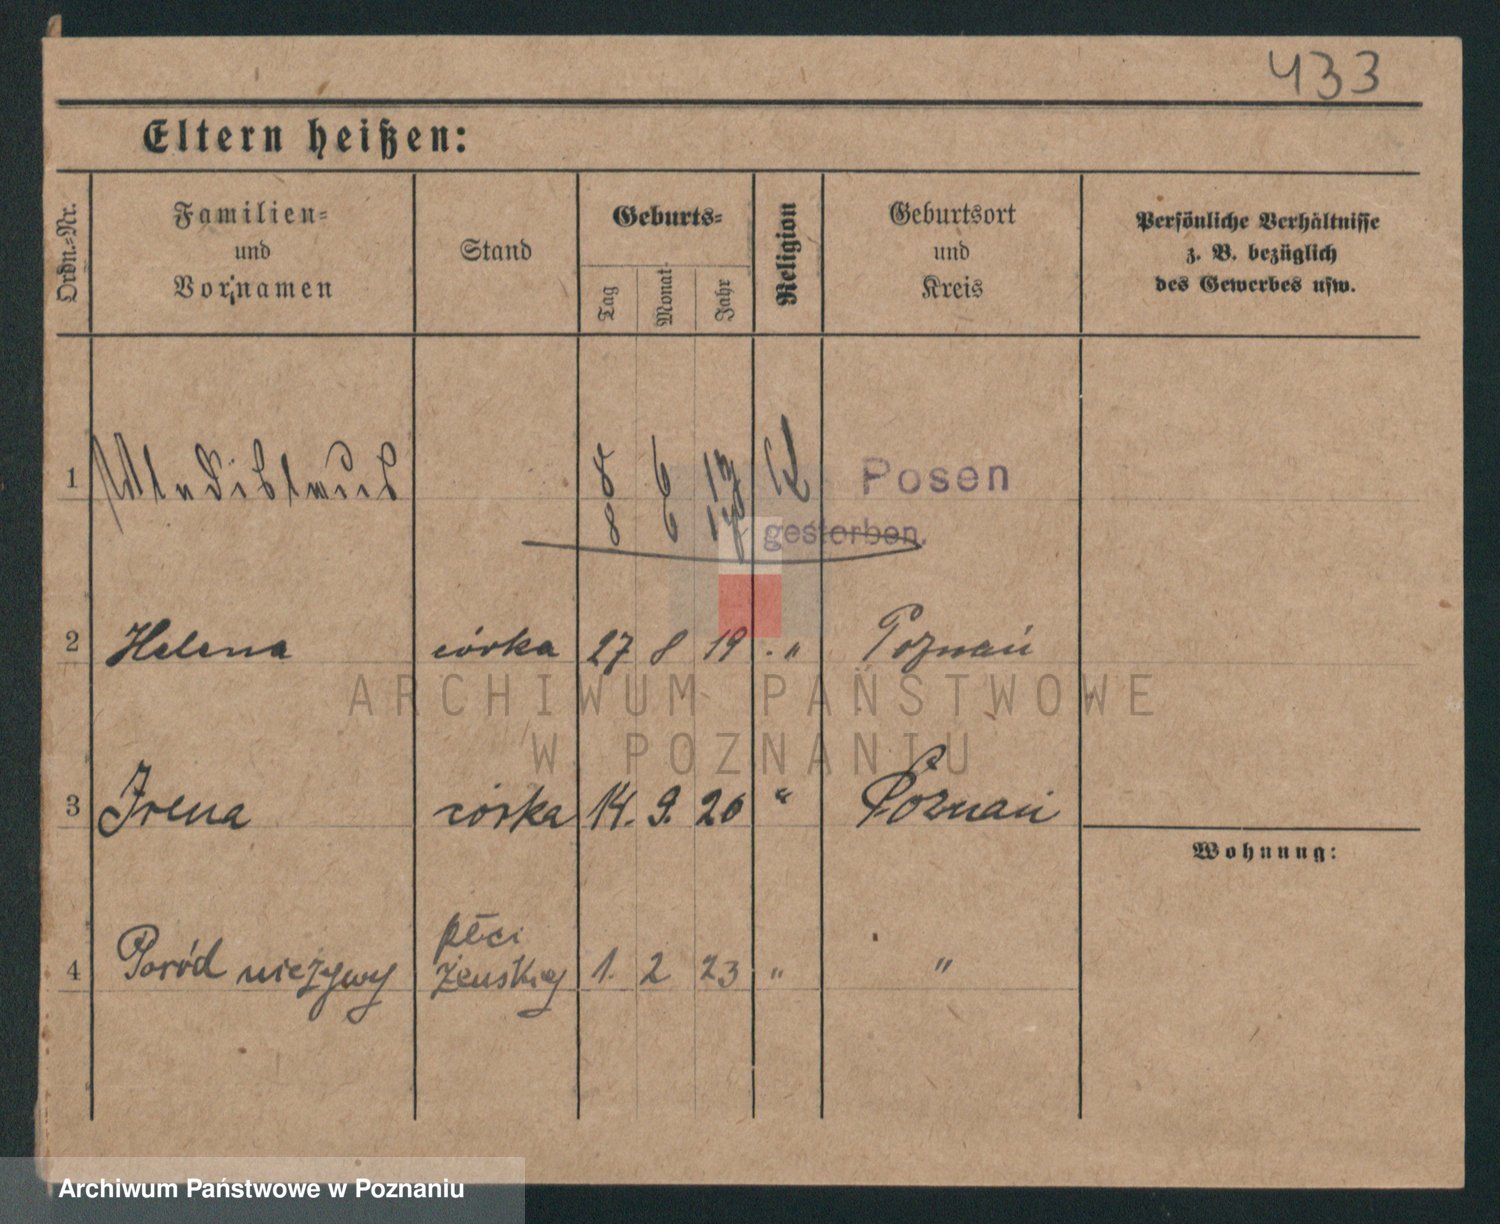 433
Eltern heißen:
Ordn.-Nr.
Familien-
und
Vornamen
Stand
Geburts-
Tag
Monat
Jahr
Religion
Geburtsort
und
Kreis
Persönliche Verhältnisse
z. B. bezüglich
des Gewerbes usw.
1 Wladislaus 8 6 17 K Posen
8 6 17 gestorben.
2 Helena córka 27 8 19 . " Poznań
ARCHIWUM PAŃSTWOWE
W POZNANIU
3 Irena córka 14. 9. 20 " Poznań
Wohnung:
płci
4 Poród nieżywy żeńskiej 1. 2 23 " "
Archiwum Państwowe w Poznaniu